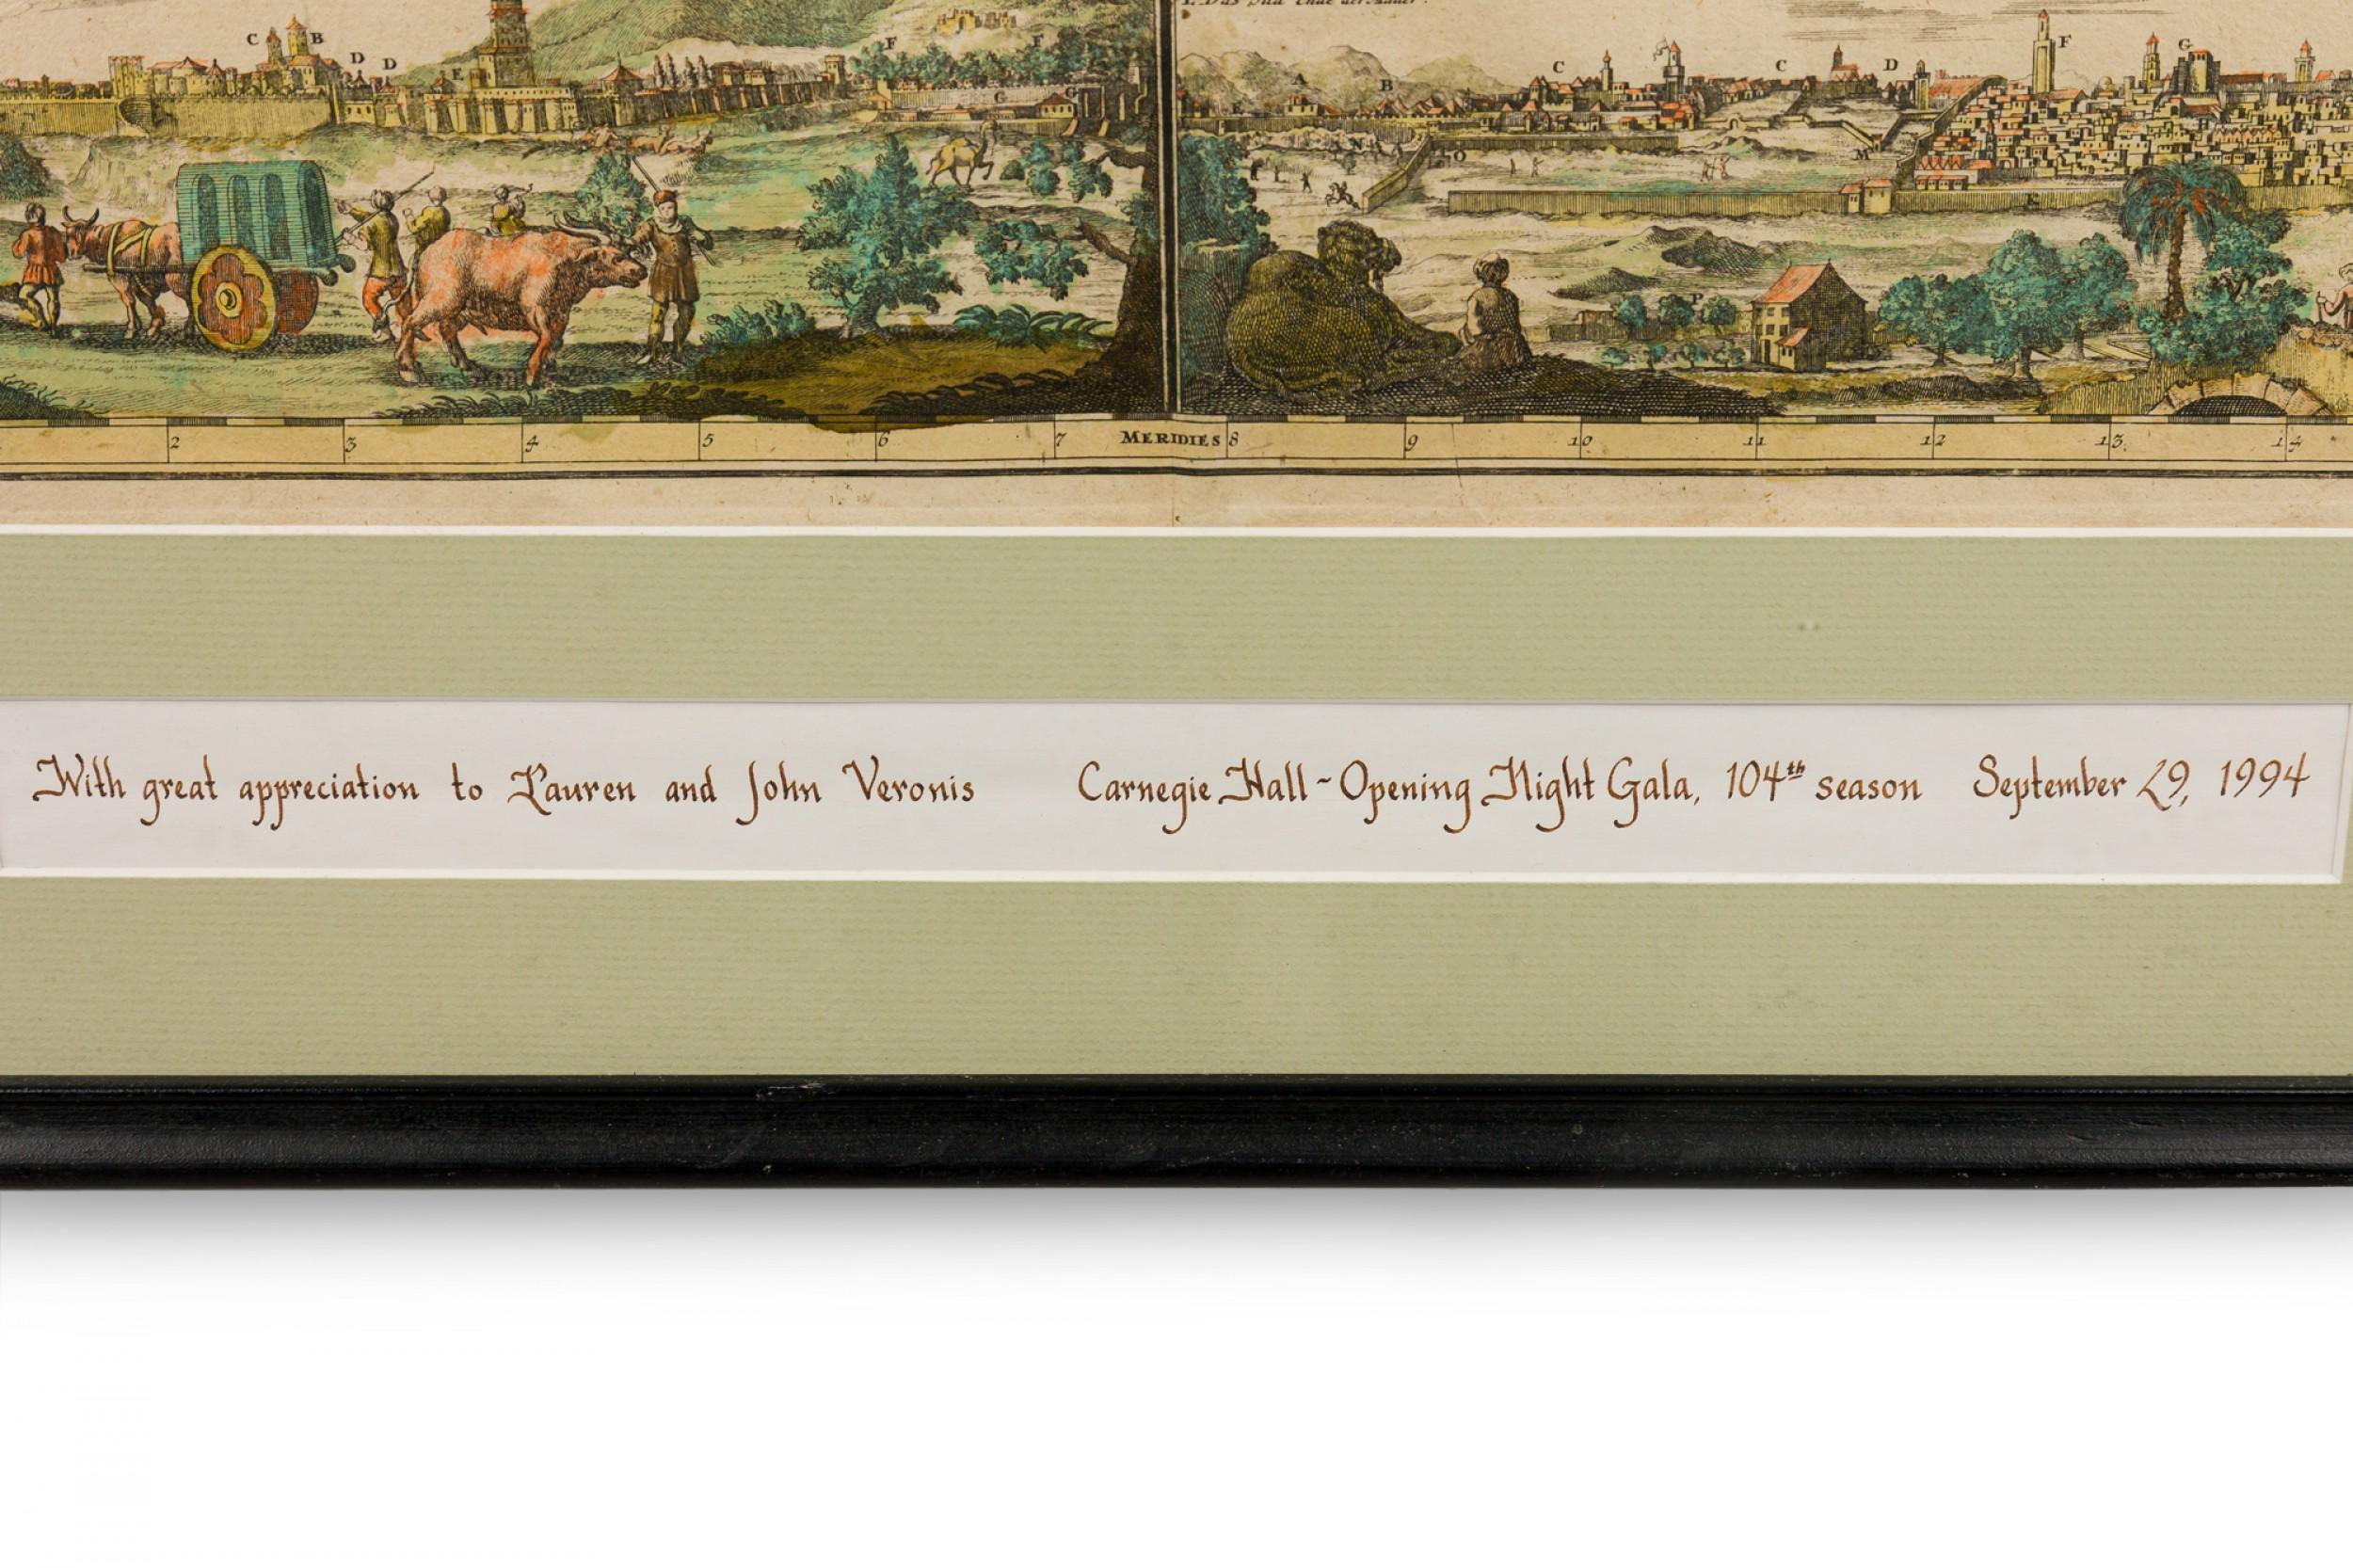 C B D D E F F G G
A B C C D F G
E N O M E P
2 3 4 5 6 7 MERIDIES 8 9 10 11 12 13 14
With great appreciation to Lauren and John Veronis Carnegie Hall ~ Opening Night Gala, 104th season September 29, 1994